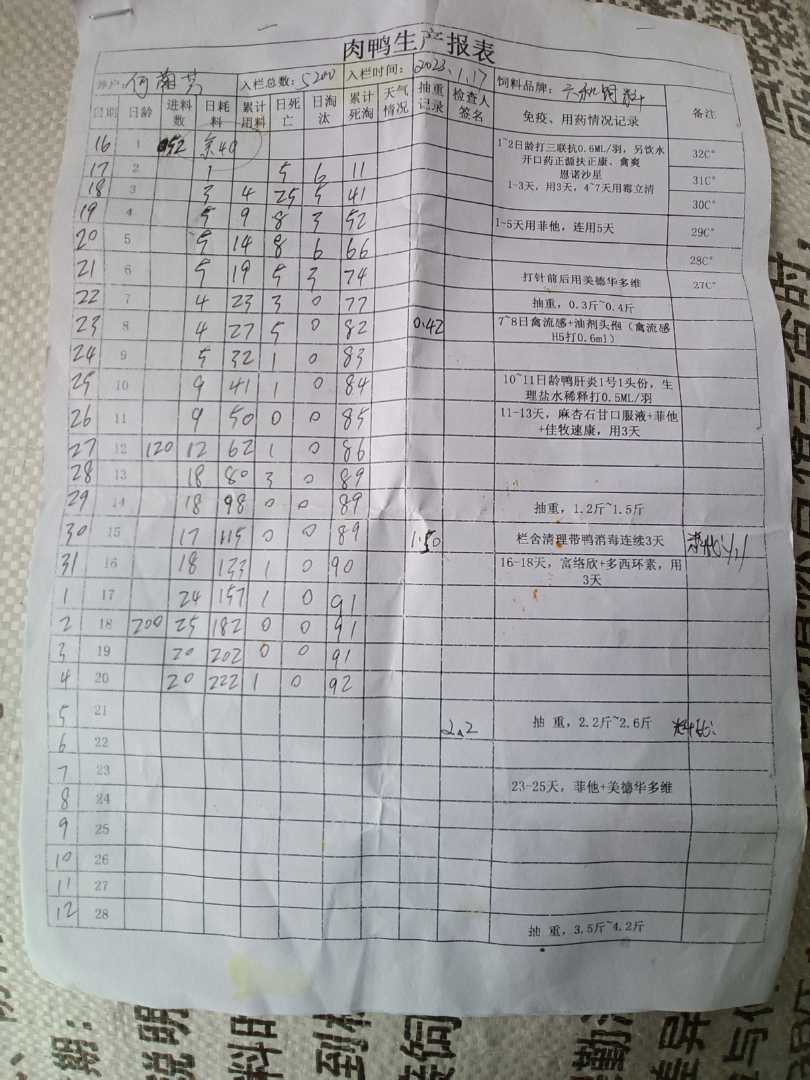 肉鸭生产报表
养户: 何南芳 入栏总数: 5200 入栏时间: 2023.1.17 饲料品牌: 六和饲料
日期 日龄 进料数 日耗料 累计用料 日死亡 日淘汰 累计死淘 天气情况 抽重记录 检查人签名 免疫、用药情况记录 备注
16 1 余40 1~2日龄打三联抗0.6ML/羽,另饮水 32C°
17 2 1 5 6 11 开口药正源扶正康、禽爽
恩诺沙星 31C°
18 3 3 4 25 5 41 1-3天,用3天,4~7天用霉立清 30C°
19 4 5 9 8 3 52 1-5天用菲他,连用5天 29C°
20 5 5 14 8 6 66 28C°
21 6 5 19 5 3 74 打针前后用美德华多维 27C°
22 7 4 23 3 0 77 抽重,0.3斤~0.4斤
23 8 4 27 5 0 82 0.42 7~8日禽流感+油剂头孢(禽流感
H5打0.6ml)
24 9 5 32 1 0 83
25 10 9 41 1 0 84 10~11日龄鸭肝炎1号1头份,生
理盐水稀释打0.5ML/羽
26 11 9 50 0 0 85 11-13天,麻杏石甘口服液+菲他
+佳牧速康,用3天
27 12 120 12 62 1 0 86
28 13 18 80 3 0 89
29 14 18 98 0 0 89 抽重,1.2斤~1.5斤
30 15 17 115 0 0 89 1.50 栏舍清理带鸭消毒连续3天
31 16 18 133 1 0 90 16-18天,富络欣+多西环素,用
3天
1 17 24 157 1 0 91
2 18 200 25 182 0 0 91
3 19 20 202 0 0 91
4 20 20 222 1 0 92
5 21 2.2 抽 重,2.2斤~2.6斤
6 22
7 23 23-25天,菲他+美德华多维
8 24
9 25
10 26
11 27
12 28 抽 重,3.5斤~4.2斤
期:
说明
料用
到
饲